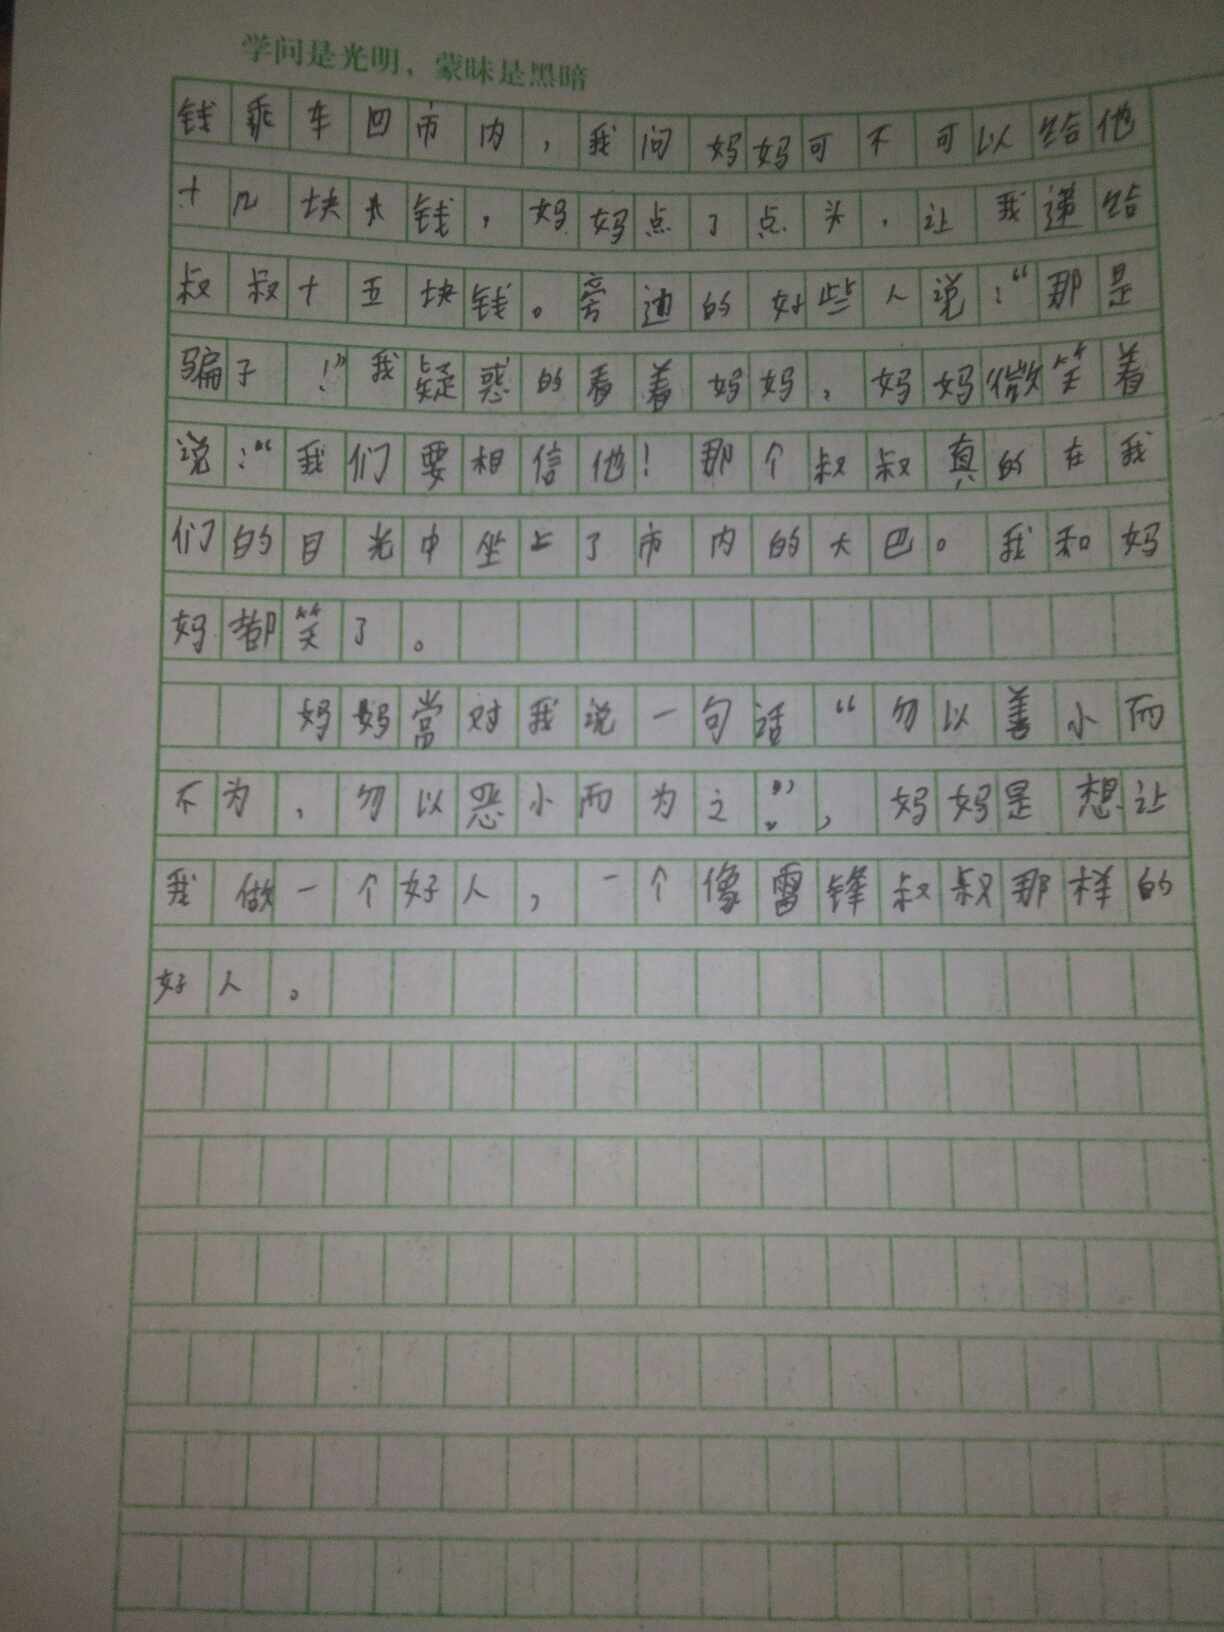 学问是光明，蒙昧是黑暗
钱乘车回市内，我问妈妈可不可以给他
十几块大钱，妈妈点了点头，让我递给
叔叔十五块钱。旁边的好些人说：“那是
骗子！”我疑惑的看着妈妈，妈妈微笑着
说：“我们要相信他！那个叔叔真的在我
们的目光中坐上了市内的大巴。我和妈
妈都笑了。
妈妈常对我说一句话“勿以善小而
不为，勿以恶小而为之。”，妈妈是想让
我做一个好人，一个像雷锋叔叔那样的
好人。